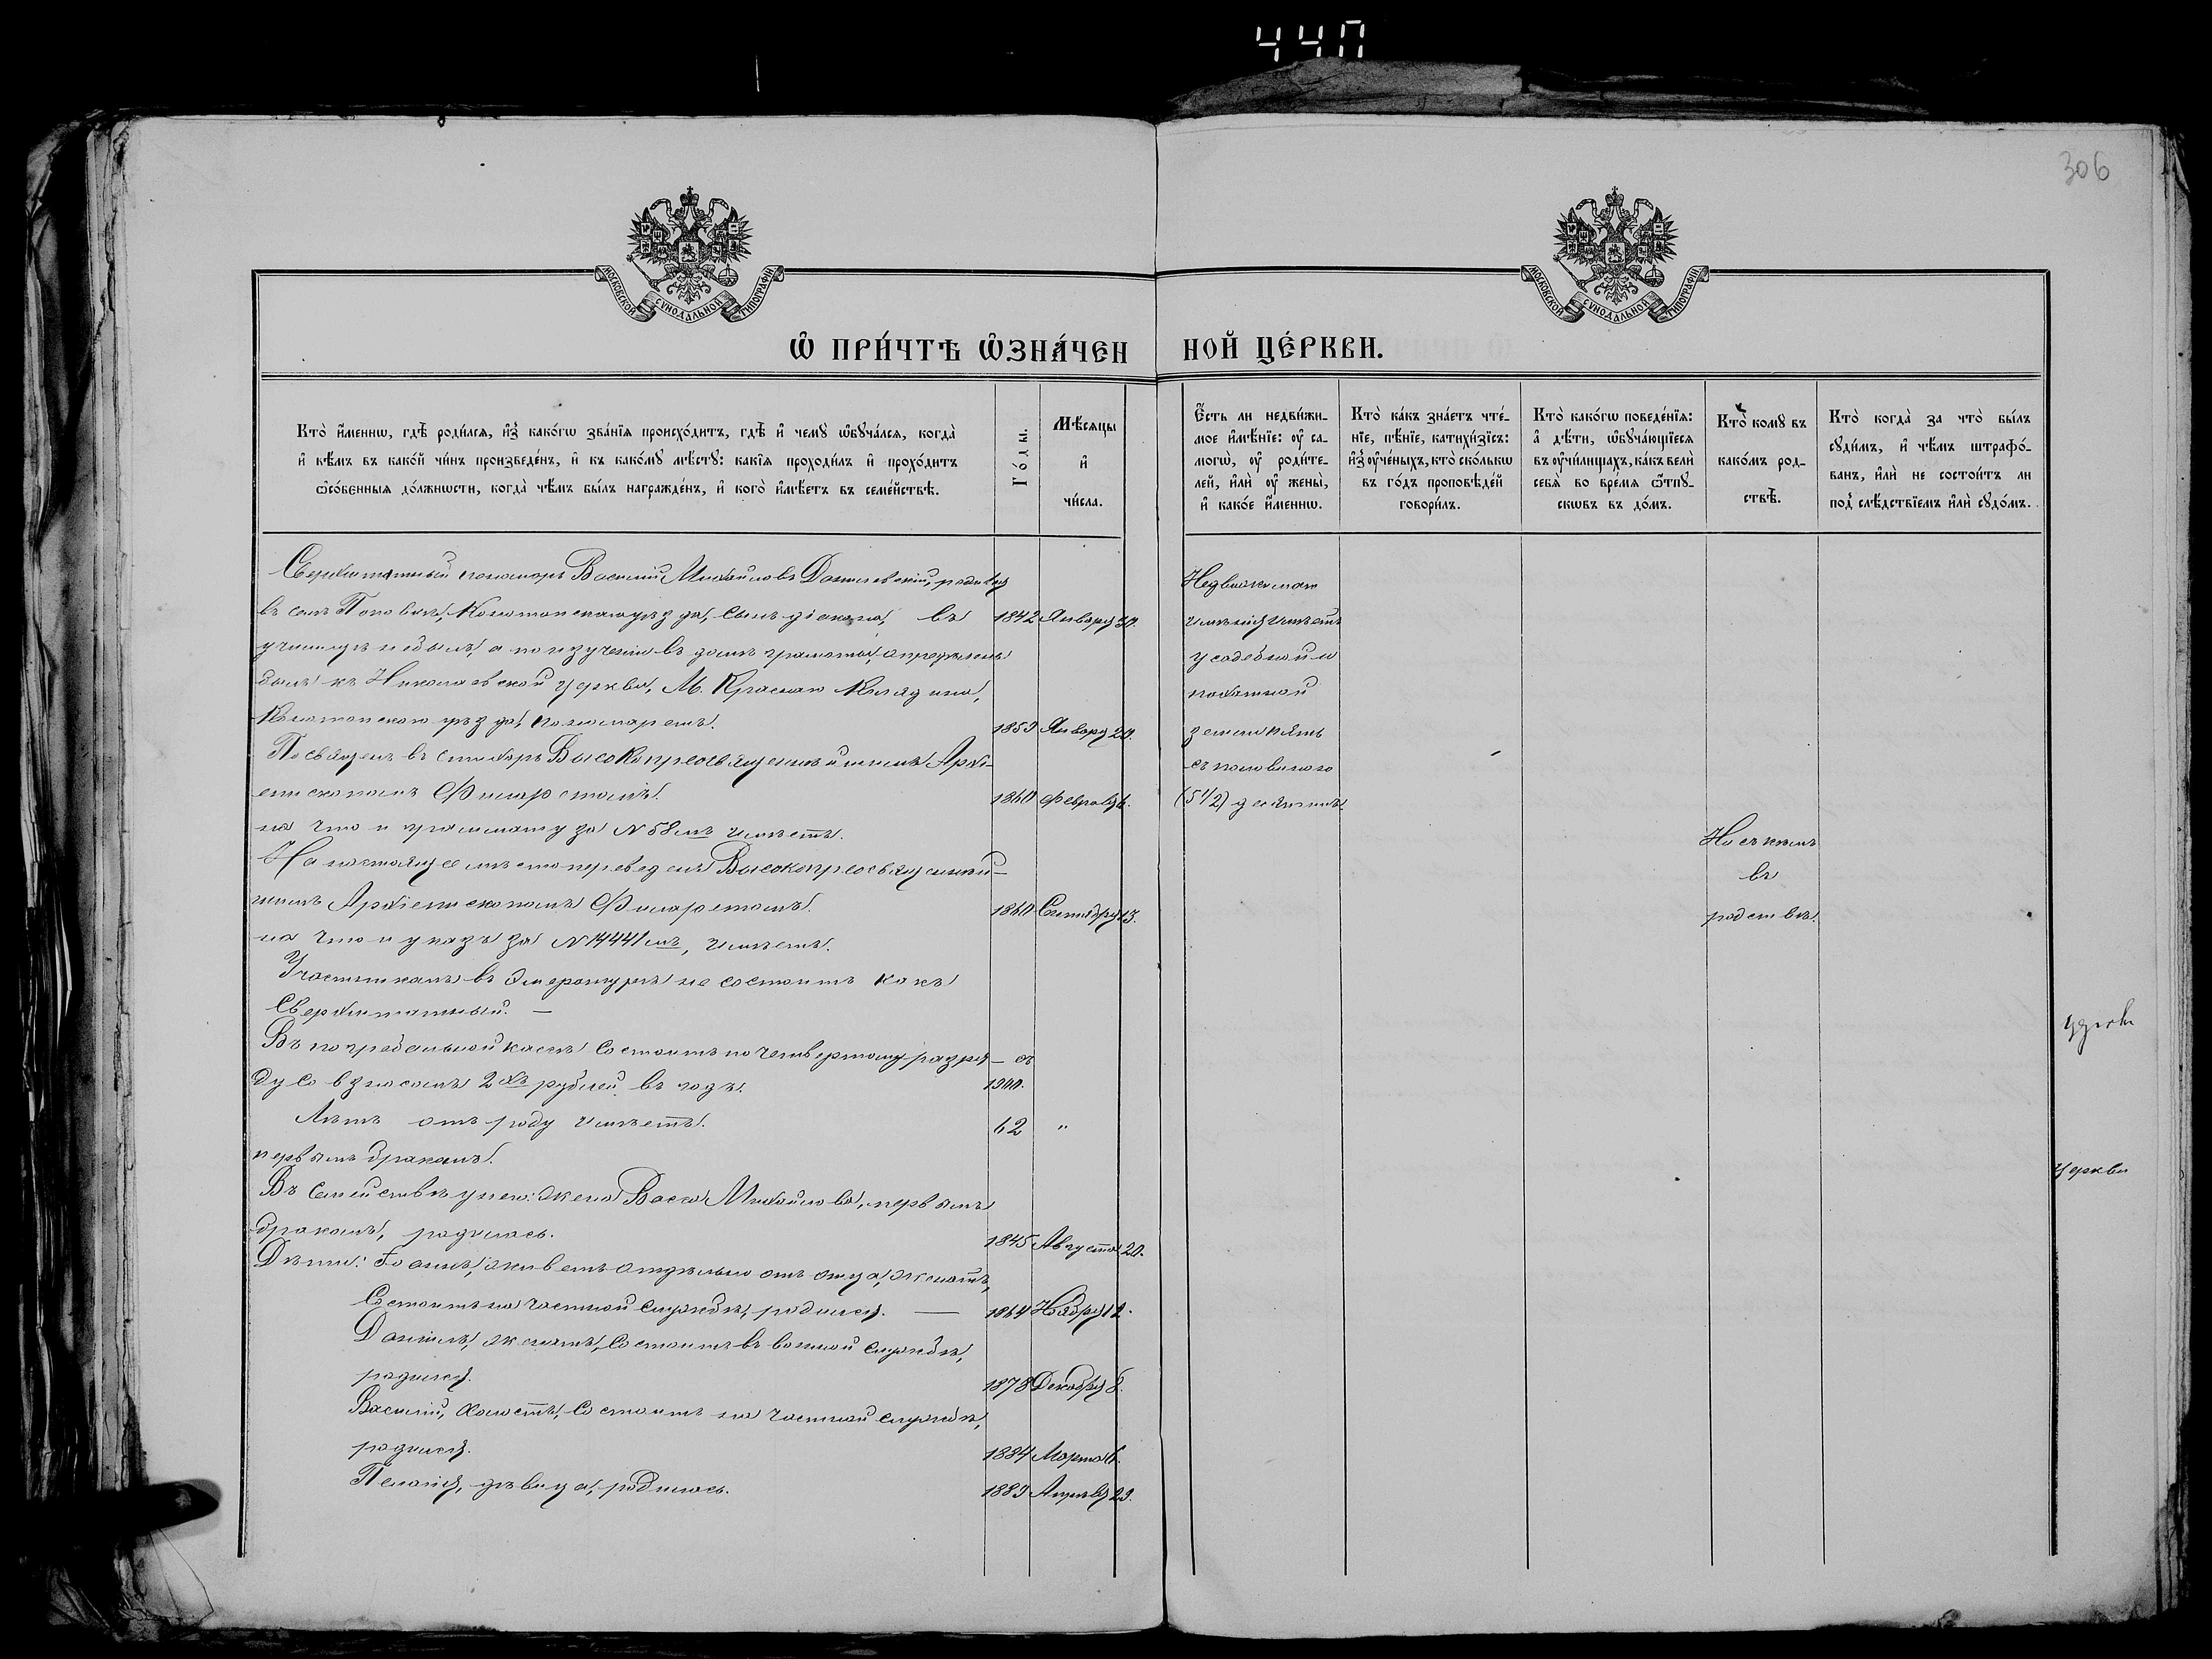 440
306
МОСКОВСКОЙ СѴНОДАЛЬНОЙ ТИПОГРАФІИ
МОСКОВСКОЙ СѴНОДАЛЬНОЙ ТИПОГРАФІИ
Ѡ ПРИ́ЧТѢ ѠЗНА́ЧЕННОЙ ЦЕ́РКВИ.
Кто̀ и҆́меннѡ, гдѣ̀ роди́лсѧ, и҆з̾ како́гѡ зва́нїѧ происхо́дитъ, гдѣ̀ и҆ чемꙋ̀ ѡ҆бꙋча́лсѧ, когда̀
и҆ кѣ́мъ въ како́й чи́нъ произведе́нъ, и҆ къ како́мꙋ мѣ́стꙋ: какі̑ѧ проходи́лъ и҆ прохо́дитъ
ѻ҆со́бенныѧ до́лжнѡсти, когда̀ чѣ́мъ бы́лъ награжде́нъ, и҆ кого̀ и҆мѣ́етъ въ семе́йствѣ.
Го́ды.
Мѣ́сѧцы
и҆
чи́сла.
Є҆́сть ли недви́жи-
мое и҆мѣ́нїе: оу҆ са-
могѡ̀, оу҆ роди́те-
лей, и҆лѝ оу҆ жены̀,
и҆ како́е и҆́меннѡ.
Кто̀ ка́къ зна́етъ чте́-
нїе, пѣ́нїе, катихи́зїсъ:
и҆з̾ оу҆че́ныхъ, кто̀ ско́лькѡ
въ го́дъ проповѣ́дей
говори́лъ.
Кто̀ како́гѡ поведе́нїѧ:
а҆ дѣ́ти, ѡ҆бꙋча́ющїесѧ
въ оу҆чи́лищахъ, ка́къ велѝ
себѧ̀ во вре́мѧ ѿпꙋ-
скѡвъ въ до́мъ.
Кто̀ комꙋ̀ въ
како́мъ род-
ствѣ̀.
Кто̀ когда̀ за что̀ бы́лъ
сꙋди́мъ, и҆ чѣ́мъ штрафо́-
ванъ, и҆лѝ не состои́тъ ли
под̾ слѣ́дствїемъ и҆лѝ сꙋдо́мъ.
Сверхштатный пономарь Василий Михайловъ Данилевскій, родился
въ селѣ Поповкѣ, Конотопскаго уѣзда, сынъ діакона, въ 1842 Января 30.
училищѣ не былъ, а по изученіи въ домѣ грамоты, опредѣленъ
былъ къ Николаевской церкви, М. Краснаго Колядина,
Конотопскаго уѣзда, пономаремъ. 1859 Января 20.
Посвященъ въ стихарь Высокопреосвященнѣйшимъ Архі-
епископомъ Филаретомъ. 1860 Февраля 6.
на что и грамматy за № 58мъ имѣетъ.
На настоящее мѣсто переведенъ Высокопреосвященнѣй-
шимъ Архіепископомъ Филаретомъ. 1860 Сентября 13.
на что и указъ за № 14441мъ, имѣетъ.
Участникомъ въ эмеритурѣ не состоитъ какъ
Сверхштатный. —
Въ погребальной кассѣ состоитъ по четвертому разря- съ
ду со взносомъ 2хъ рублей въ годъ. 1900.
Лѣтъ отъ роду имѣетъ. 62 "
первымъ бракомъ.
Въ семействѣ у него: жена Васса Михайлова, первымъ
бракомъ, родилась. 1845 Августа 20.
Дѣти: Іоаннъ, живетъ отдѣльно отъ отца, женатъ,
Состоитъ на частной службѣ, родился. — 1864 Ноября 12.
Даніилъ, женатъ, состоитъ въ военной службѣ,
родился. 1878 Декабря 8.
Василій, холостъ, состоитъ на частной службѣ,
родился. 1884 Марта 6.
Пелагія, дѣвица, родилась. 1889 Апрѣля 29.
Недвижимаго
имѣнія имѣетъ
усадебной и
пахатной
земли пять
съ половиною
(5 1/2) десятинъ.
Ни съ кѣмъ
въ
родствѣ.
церкви